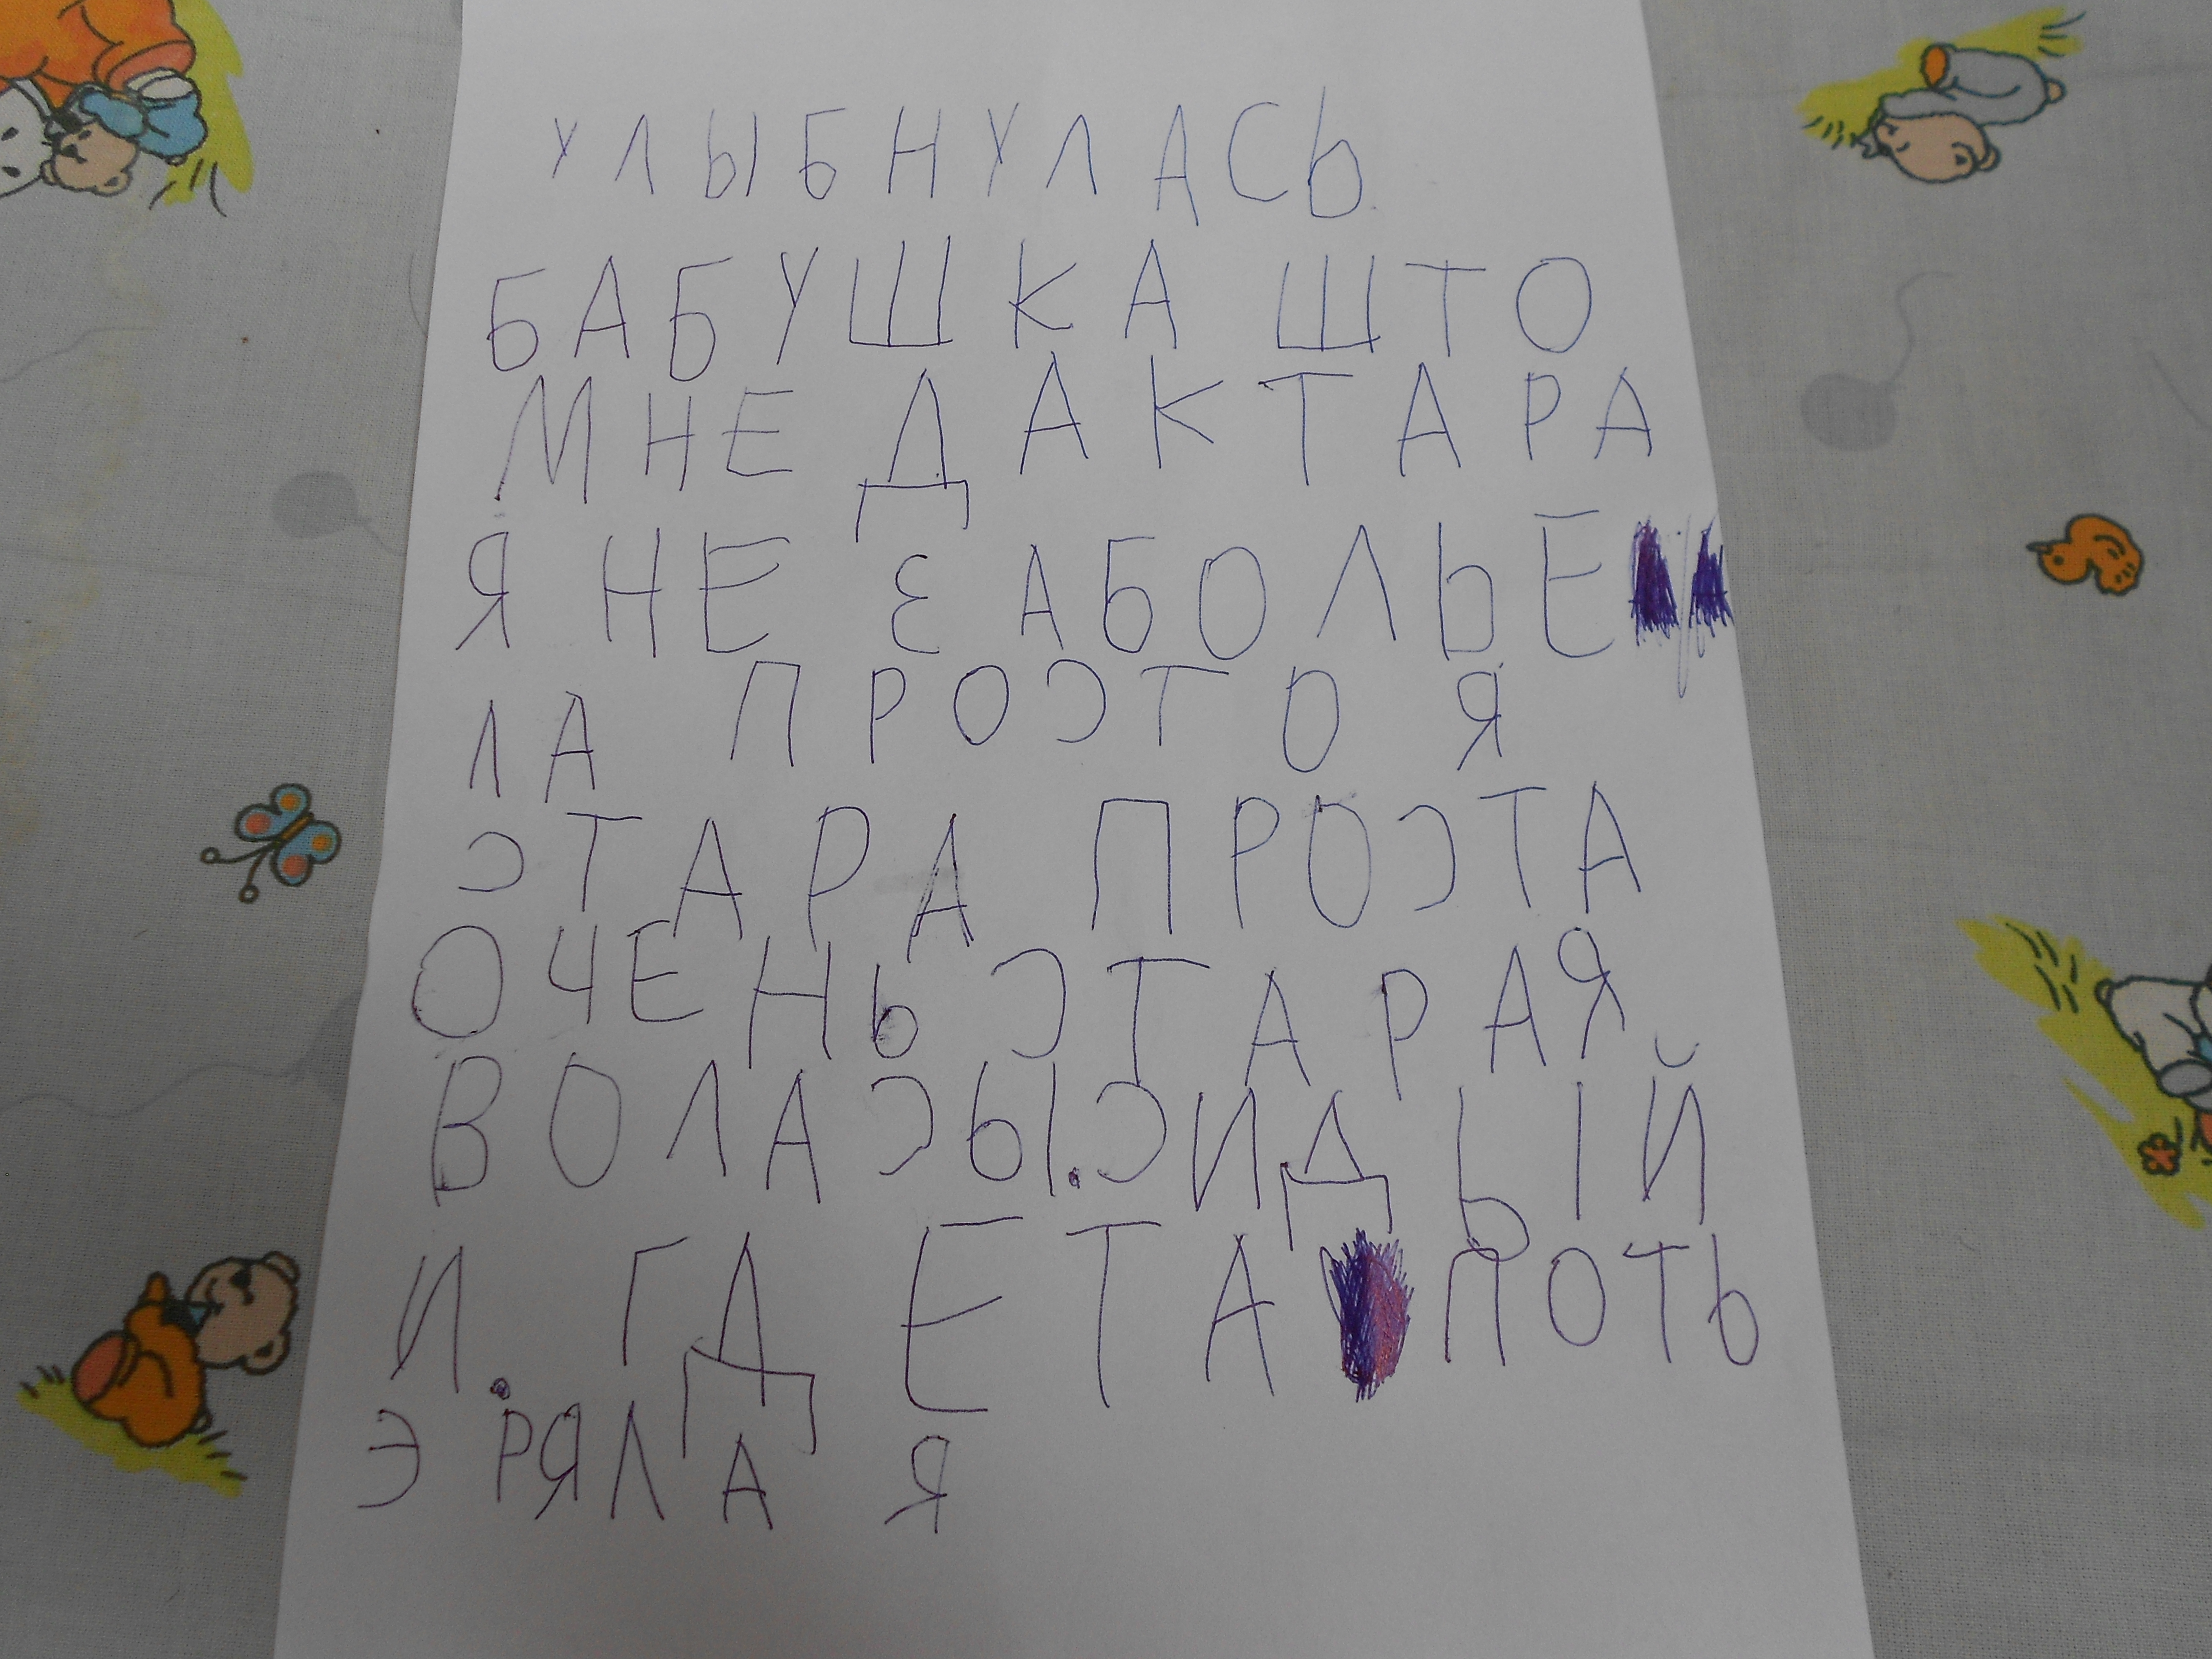 УЛЫБНУЛАСЬ
БАБУШКА ШТО
МНЕ ДАКТАРА
Я НЕ ЗАБОЛЬЕ
ЛА ПРОСТО Я
СТАРА ПРОСТА
ОЧЕНЬ СТАРАЯ
ВОЛАСЫ.СИДЫЙ
И. ГДЕТА ПОТЬ
ЭРЯЛА Я